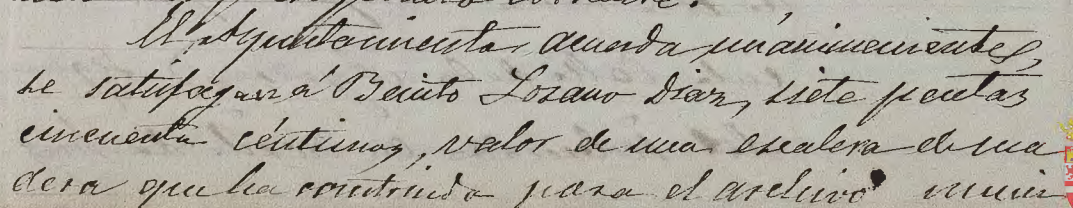 El Ayuntamiento, acuerda unánimemente,
se satisfagan á Benito Lozano Diaz, siete pesetas
cincuenta céntimos, valor de una escalera de ma
dera que ha construido para el archivo muni